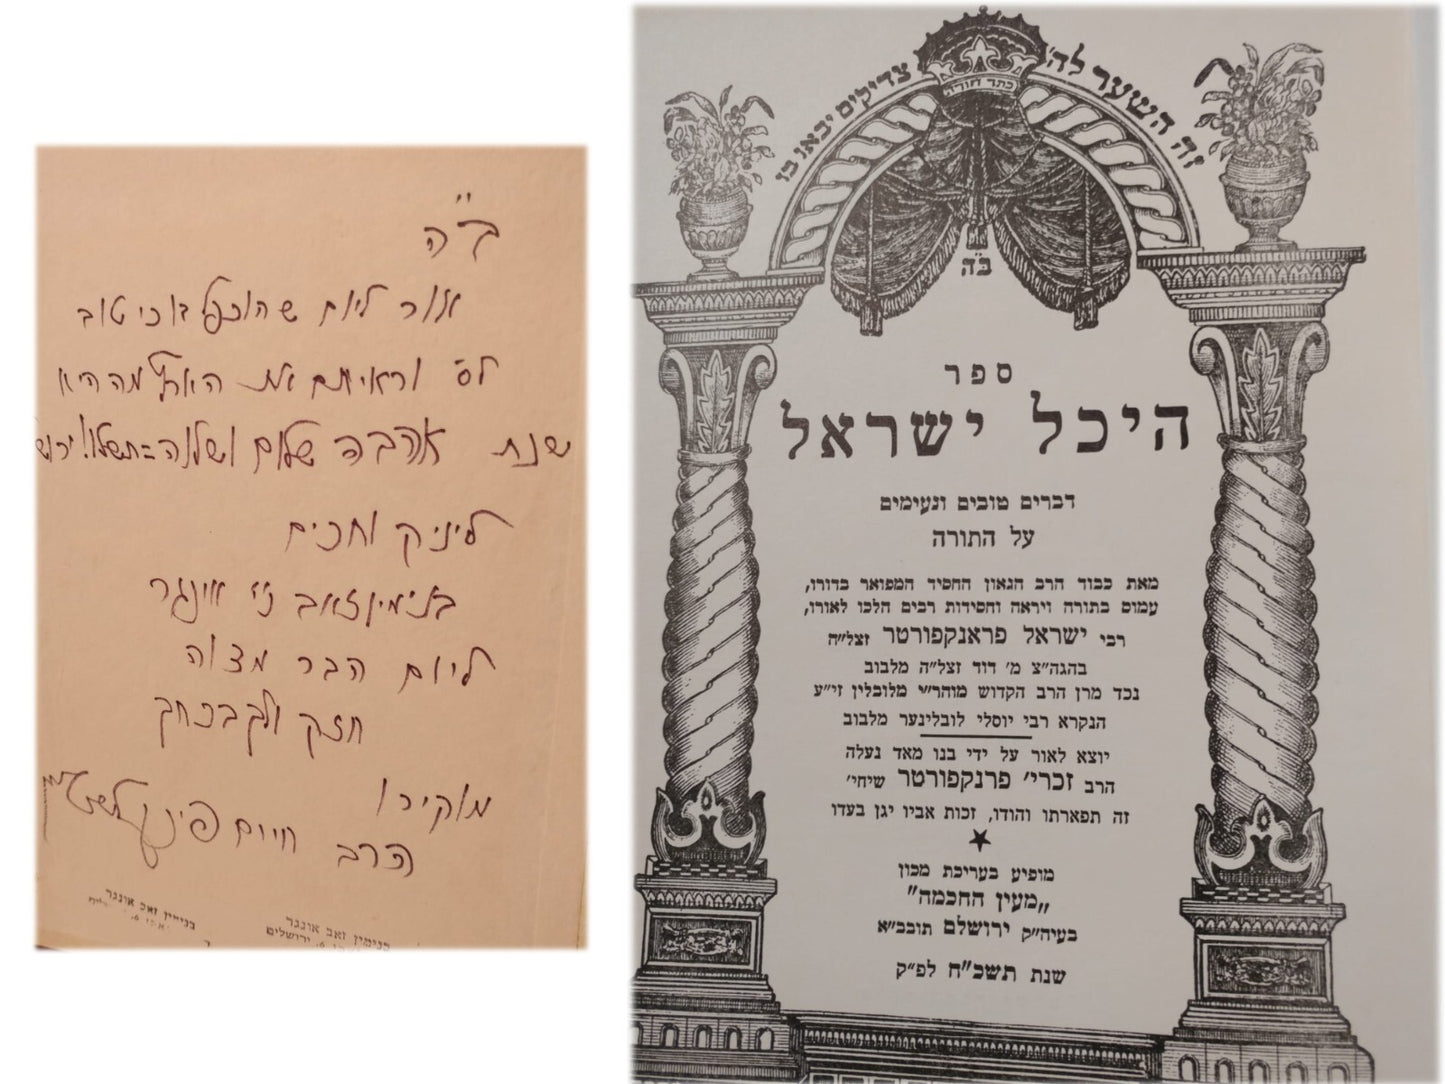 ב"ה
אור ליום שהוכפל בו כי טוב
לס' וראיתם את הארץ מה היא
שנת אהבה שלום ושלוה=תשל"ו! ירוש
ליניק וחכים
בנימין זאב ני" אונגר
ליום הבר מצוה
חזק ולך בכחך
מוקירו
הרב חיים
בנימין זאב אונגר
בנימין זאב אונגר
6, ירושלים
זה השער לה' צדיקים יבאו בו
כתר תורה
ב"ה
ספר
היכל ישראל
דברים טובים ונעימים
על התורה
מאת כבוד הרב הגאון החסיד המפואר בדורו,
עמוס בתורה ויראה וחסידות רבים הלכו לאורו,
רבי ישראל פראנקפורטר זצל"ה
בהגה"צ מ' דוד זצל"ה מלבוב
נכד מרן הרב הקדוש מוהר"י מלובלין זי"ע
הנקרא רבי יוסלי לובלינער מלבוב
יוצא לאור על ידי בנו מאד נעלה
הרב זכרי' פרנקפורטר שיחי'
זה תפארתו והודו, זכות אביו יגן בעדו
מופיע בעריכת מכון
„מעין החכמה"
בעיה"ק ירושלם תובב"א
שנת תשכ"ח לפ"ק